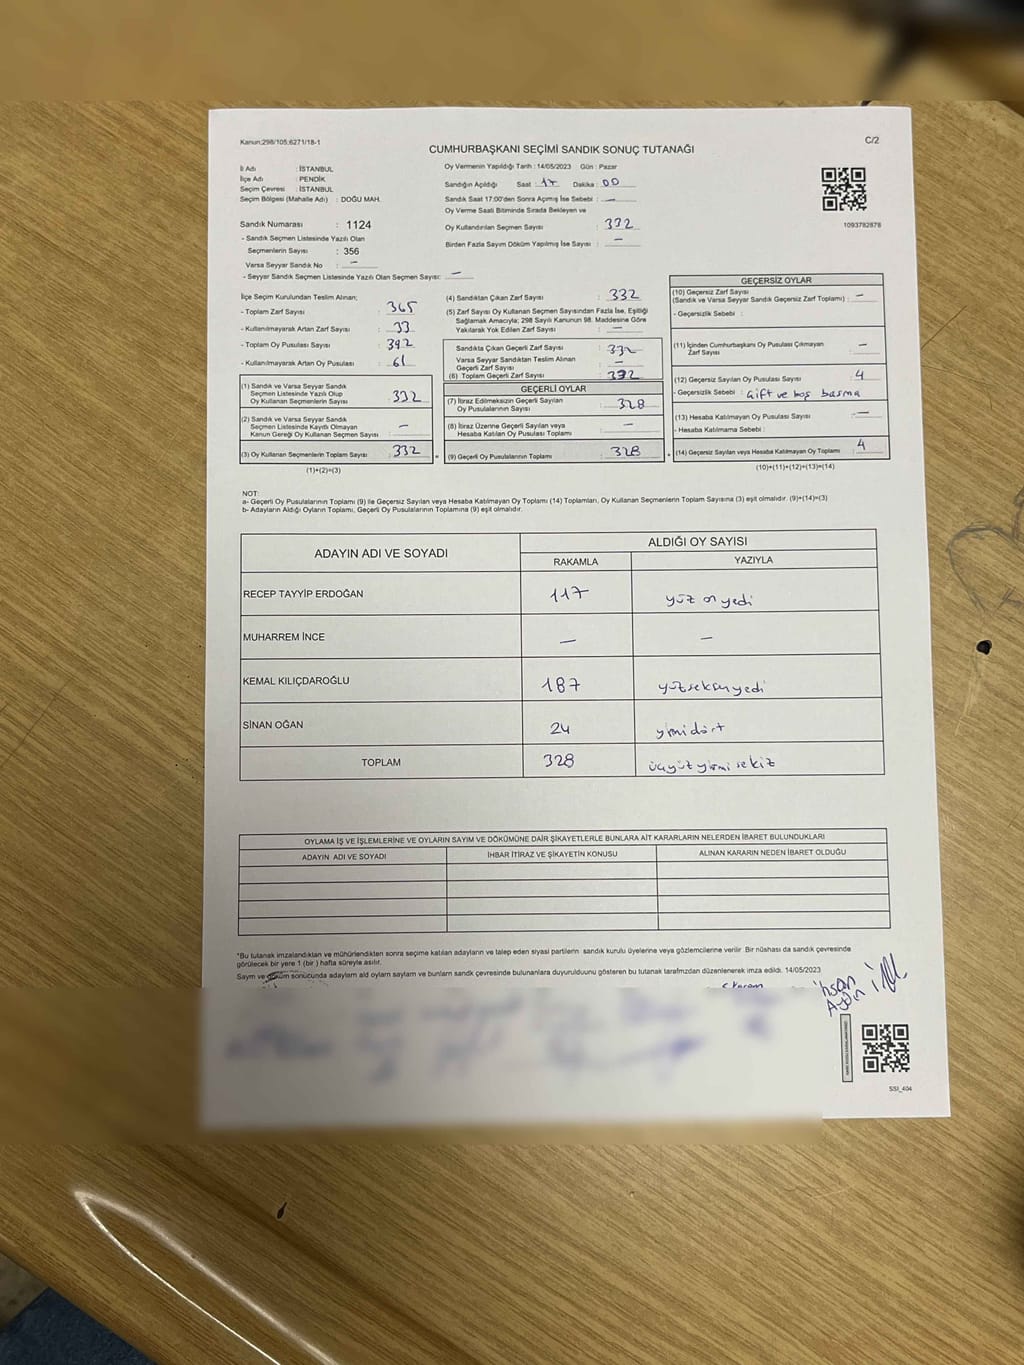 Kanun;298/105;6271/18-1
C/2
CUMHURBAŞKANI SEÇİMİ SANDIK SONUÇ TUTANAĞI
İl Adı : İSTANBUL
İlçe Adı : PENDİK
Seçim Çevresi : İSTANBUL
Seçim Bölgesi (Mahalle Adı) : DOĞU MAH.
Oy Vermenin Yapıldığı Tarih : 14/05/2023 Gün : Pazar
Sandığın Açıldığı Saat : 17 Dakika : 00
Sandık Saat 17:00'den Sonra Açımış İse Sebebi : —
Oy Verme Saati Bitiminde Sırada Bekleyen ve
Oy Kullandırılan Seçmen Sayısı : 332
Birden Fazla Sayım Döküm Yapılmış İse Sayısı : —
1093782878
Sandık Numarası : 1124
- Sandık Seçmen Listesinde Yazılı Olan
Seçmenlerin Sayısı : 356
Varsa Seyyar Sandık No : —
- Seyyar Sandık Seçmen Listesinde Yazılı Olan Seçmen Sayısı: —
İlçe Seçim Kurulundan Teslim Alınan;
- Toplam Zarf Sayısı : 365
- Kullanılmayarak Artan Zarf Sayısı : 33
- Toplam Oy Pusulası Sayısı : 392
- Kullanılmayarak Artan Oy Pusulası : 61
(1) Sandık ve Varsa Seyyar Sandık
Seçmen Listesinde Yazılı Olup
Oy Kullanan Seçmenlerin Sayısı : 332
(2) Sandık ve Varsa Seyyar Sandık
Seçmen Listesinde Kayıtlı Olmayan
Kanun Gereği Oy Kullanan Seçmen Sayısı : —
(3) Oy Kullanan Seçmenlerin Toplam Sayısı : 332
(1)+(2)=(3)
(4) Sandıktan Çıkan Zarf Sayısı : 332
(5) Zarf Sayısı Oy Kullanan Seçmen Sayısından Fazla İse, Eşitliği
Sağlamak Amacıyla; 298 Sayılı Kanunun 98. Maddesine Göre
Yakılarak Yok Edilen Zarf Sayısı : —
Sandıkta Çıkan Geçerli Zarf Sayısı : 332
Varsa Seyyar Sandıktan Teslim Alınan
Geçerli Zarf Sayısı : —
(6) Toplam Geçerli Zarf Sayısı : 332
GEÇERLİ OYLAR
(7) İtiraz Edilmeksizin Geçerli Sayılan
Oy Pusulalarının Sayısı : 328
(8) İtiraz Üzerine Geçerli Sayılan veya
Hesaba Katılan Oy Pusulası Toplamı : —
(9) Geçerli Oy Pusulalarının Toplamı : 328
GEÇERSİZ OYLAR
(10) Geçersiz Zarf Sayısı
(Sandık ve Varsa Seyyar Sandık Geçersiz Zarf Toplamı) : —
- Geçersizlik Sebebi :
(11) İçinden Cumhurbaşkanı Oy Pusulası Çıkmayan
Zarf Sayısı : —
(12) Geçersiz Sayılan Oy Pusulası Sayısı : 4
- Geçersizlik Sebebi : Çift ve boş basma
(13) Hesaba Katılmayan Oy Pusulası Sayısı : —
- Hesaba Katılmama Sebebi :
(14) Geçersiz Sayılan veya Hesaba Katılmayan Oy Toplamı : 4
(10)+(11)+(12)+(13)=(14)
NOT:
a- Geçerli Oy Pusulalarının Toplamı (9) ile Geçersiz Sayılan veya Hesaba Katılmayan Oy Toplamı (14) Toplamları, Oy Kullanan Seçmenlerin Toplam Sayısına (3) eşit olmalıdır. (9)+(14)=(3)
b- Adayların Aldığı Oyların Toplamı, Geçerli Oy Pusulalarının Toplamına (9) eşit olmalıdır.
ADAYIN ADI VE SOYADI
ALDIĞI OY SAYISI
RAKAMLA YAZIYLA
RECEP TAYYİP ERDOĞAN 117 yüz on yedi
MUHARREM İNCE — —
KEMAL KILIÇDAROĞLU 187 yüzseksenyedi
SİNAN OĞAN 24 yirmidört
TOPLAM 328 üçyüzyirmi sekiz
OYLAMA İŞ VE İŞLEMLERİNE VE OYLARIN SAYIM VE DÖKÜMÜNE DAİR ŞİKAYETLERLE BUNLARA AİT KARARLARIN NELERDEN İBARET BULUNDUKLARI
ADAYIN ADI VE SOYADI İHBAR İTİRAZ VE ŞİKAYETİN KONUSU ALINAN KARARIN NEDEN İBARET OLDUĞU
*Bu tutanak imzalandıktan ve mühürlendikten sonra seçime katılan adayların ve talep eden siyasi partilerin sandık kurulu üyelerine veya gözlemcilerine verilir. Bir nüshası da sandık çevresinde
görülecek bir yere 1 (bir ) hafta süreyle asılır.
Sayım ve döküm sonucunda adayların ald oyların sayların ve bunların sandk çevresinde bulunanlara duyurulduunu gösteren bu tutanak tarafmzdan düzenlenerek imza edildi. 14/05/2023
İhsan
Aydın
SSI_404